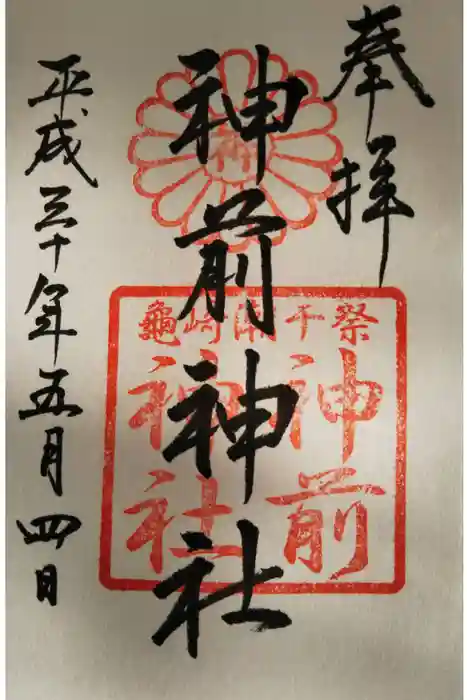 奉拝
神前神社
平成三十年五月四日
亀崎潮干祭
神前
神社